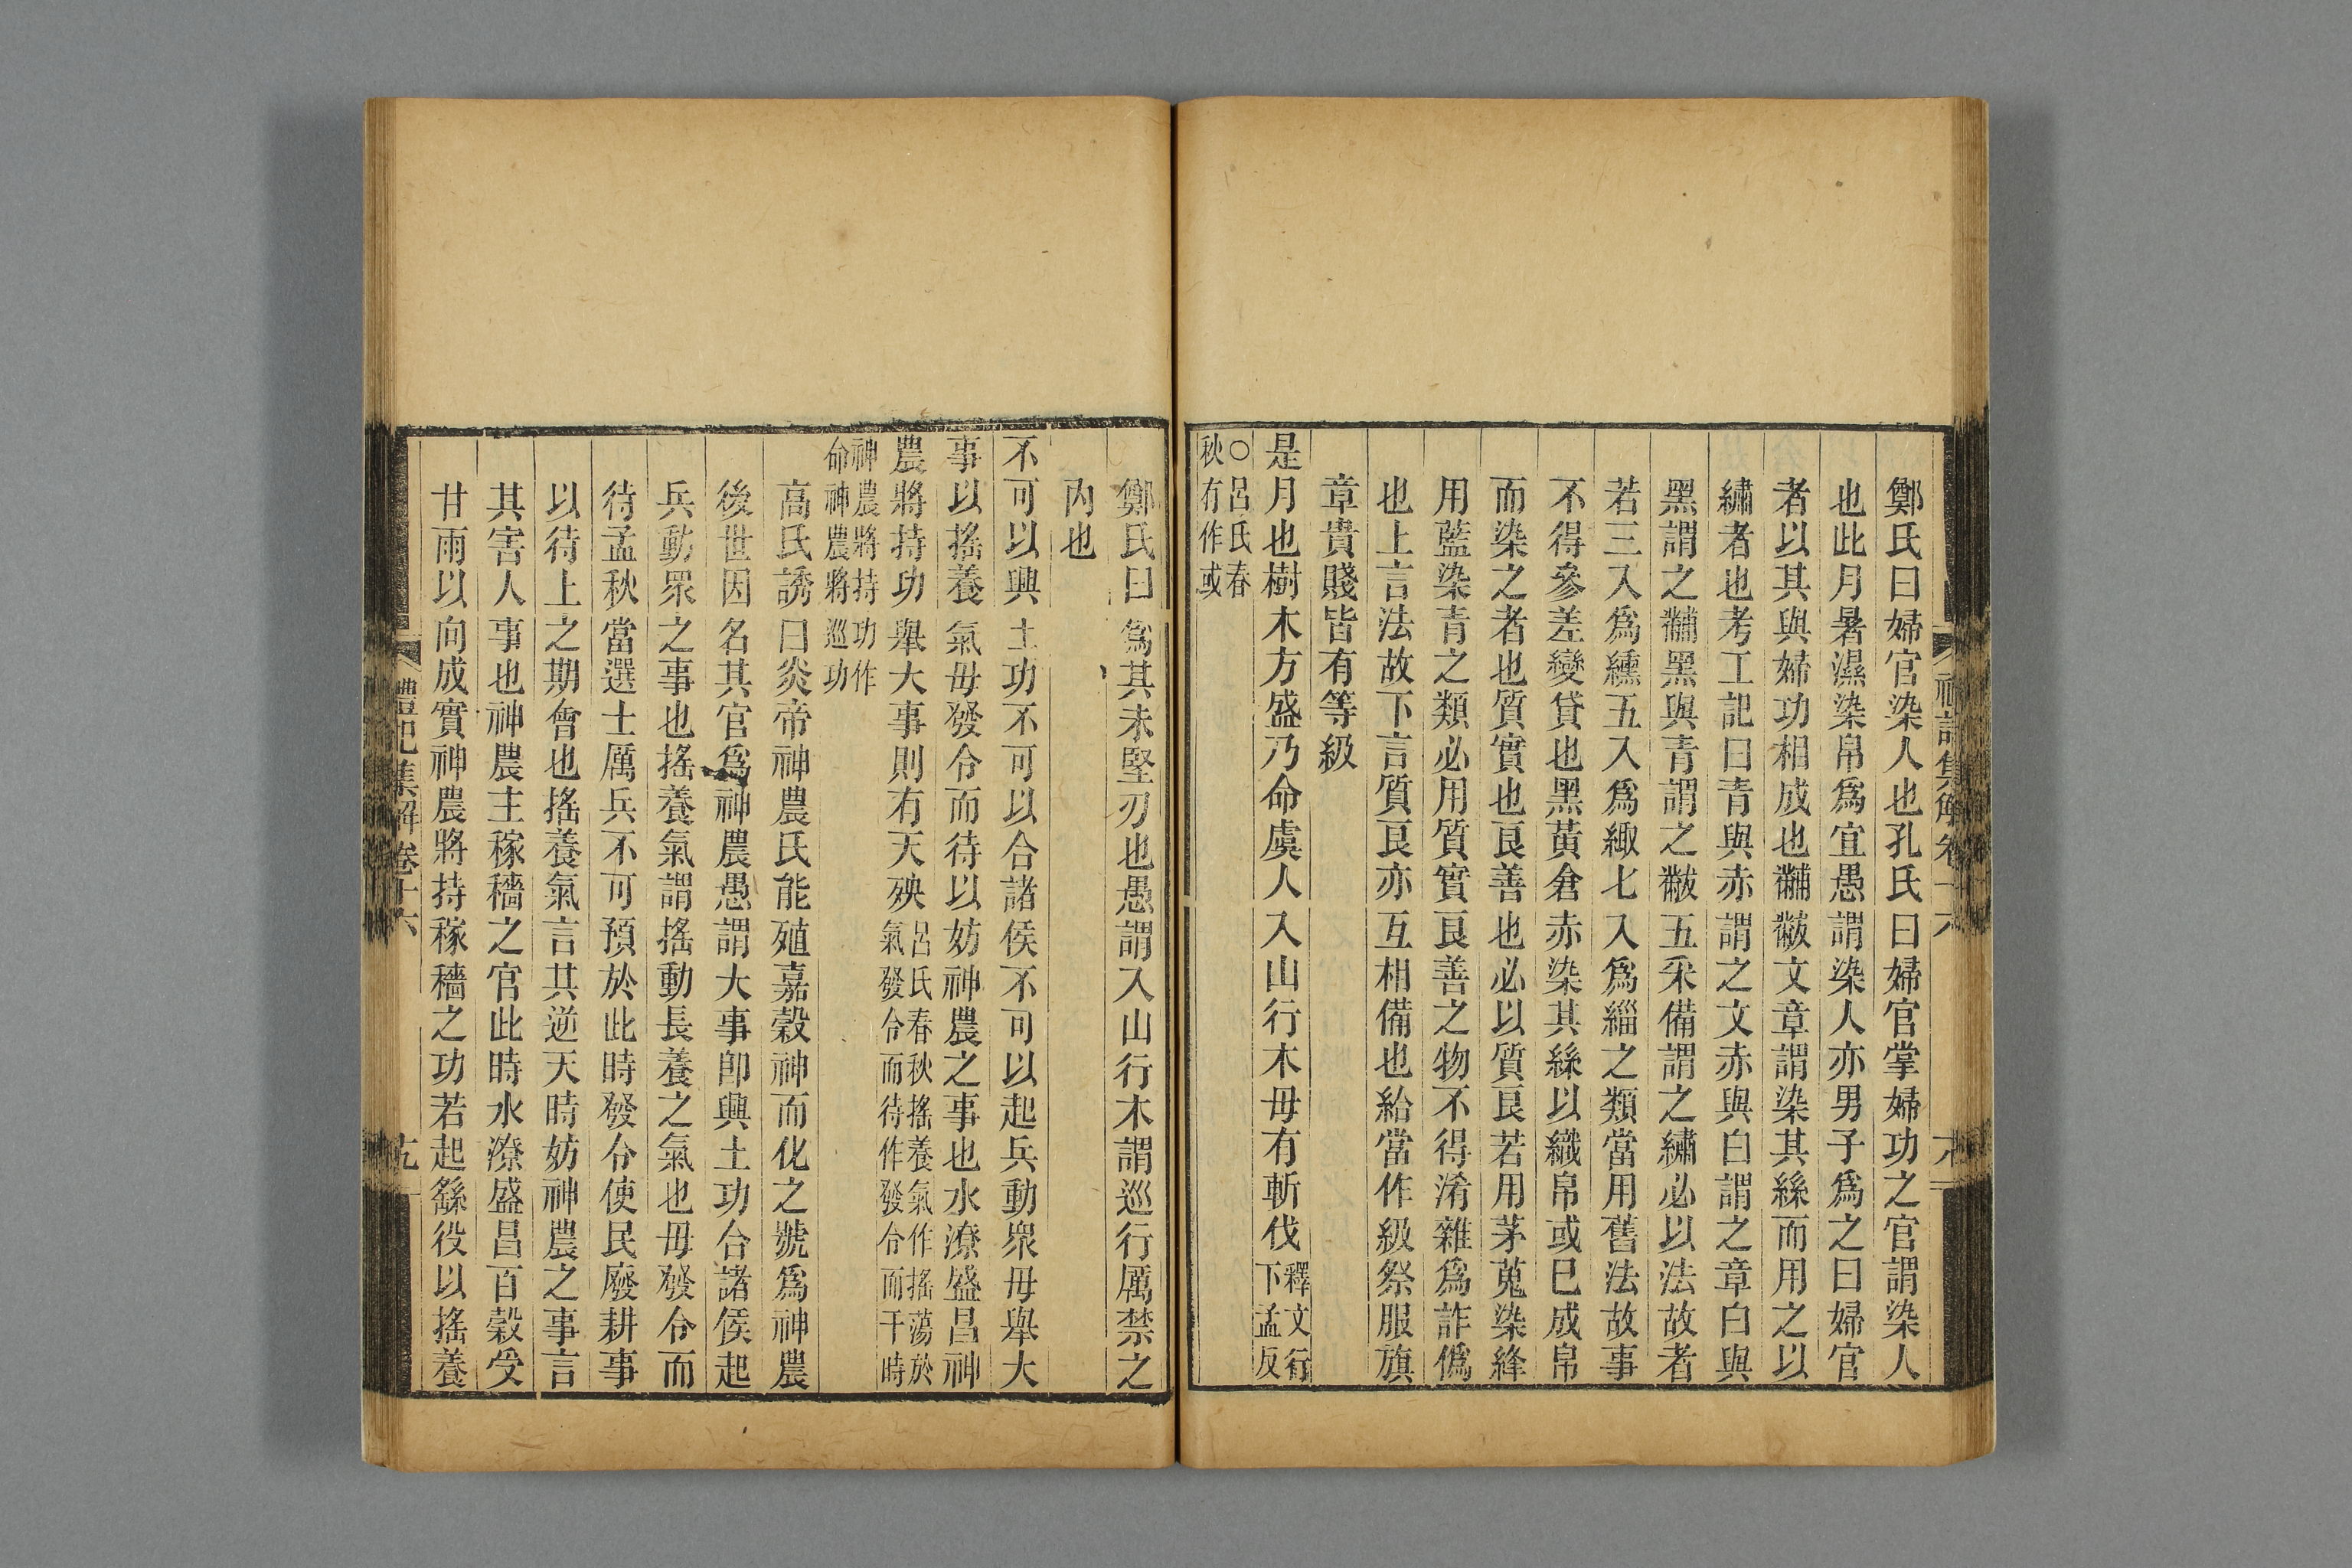 鄭氏曰婦官染人也孔氏曰婦官掌婦功之官謂染人
也此月暑濕染帛爲宜愚謂染人亦男子爲之曰婦官
者以其與婦功相成也黼黻文章謂染其絲而用之以
繡者也考工記曰青與赤謂之文赤與白謂之章白與
黑謂之黼黑與青謂之黻五采備謂之繡必以法故者
若三入爲纁五入爲緅七入爲緇之類當用舊法故事
不得參差變貸也黑黃倉赤染其絲以織帛或已成帛
而染之者也質實也良善也必以質良若用茅蒐染絳
用藍染青之類必用質實良善之物不得淆雜爲詐僞
也上言法故下言質良亦互相備也給當作級祭服旗
章貴賤皆有等級
是月也樹木方盛乃命虞人入山行木毋有斬伐釋文行
下孟反
○呂氏春
秋有作或
鄭氏曰爲其未堅刃也愚謂入山行木謂巡行厲禁之
內也
不可以興土功不可以合諸侯不可以起兵動眾毋舉大
事以搖養氣毋發令而待以妨神農之事也水潦盛昌神
農將持功舉大事則有天殃呂氏春秋搖養氣作搖蕩於
氣發令而待作發令而干時
神農將持功作
命神農將巡功
高氏誘曰炎帝神農氏能殖嘉穀神而化之號爲神農
後世因名其官爲神農愚謂大事卽興土功合諸侯起
兵動眾之事也搖養氣謂搖動長養之氣也毋發令而
待孟秋當選士厲兵不可預於此時發令使民廢耕事
以待上之期會也搖養氣言其逆天時妨神農之事言
其害人事也神農主稼穡之官此時水潦盛昌百穀受
甘雨以向成實神農將持稼穡之功若起繇役以搖養
禮記集解 卷十六